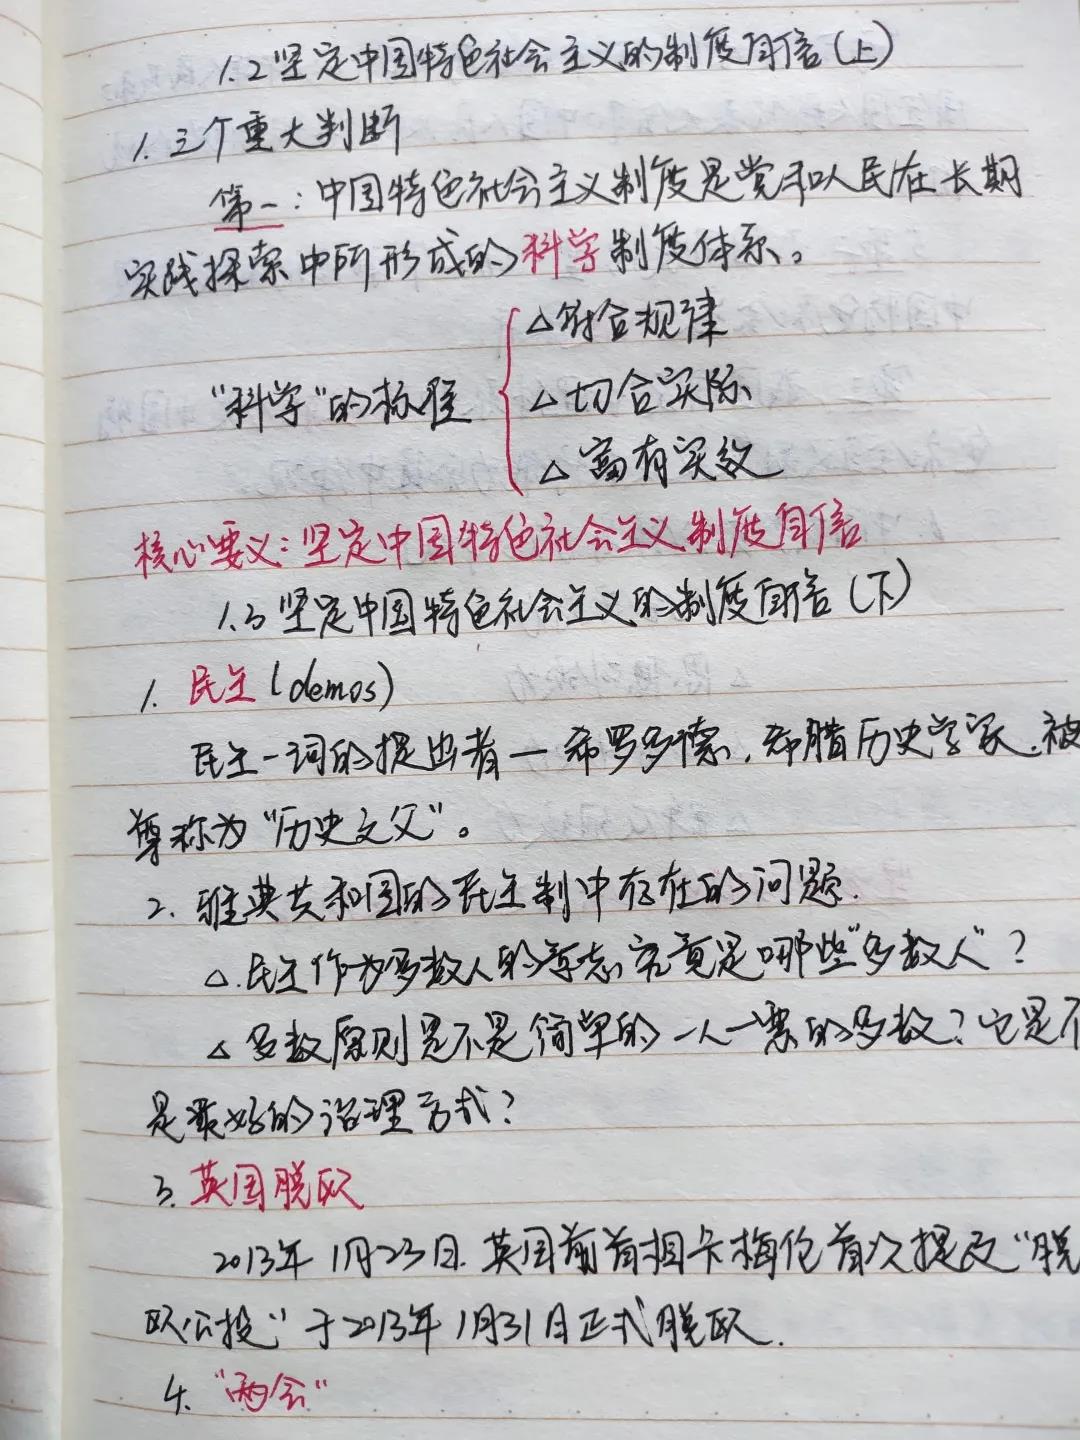 1.2 坚定中国特色社会主义的制度自信(上)
1. 三个重大判断
第一：中国特色社会主义制度是党和人民在长期
实践探索中所形成的科学制度体系。
△符合规律
"科学"的标准
△切合实际
△富有实效
核心要义：坚定中国特色社会主义制度自信
1.3 坚定中国特色社会主义的制度自信(下)
1. 民主(demos)
民主一词的提出者—希罗多德，希腊历史学家，被
尊称为"历史之父"。
2. 雅典共和国的民主制中存在的问题.
△.民主作为多数人的意志究竟是哪些"多数人"？
△多数原则是不是简单的一人一票的多数？它是不
是最好的治理方式？
3. 英国脱欧
2013年1月23日.英国前首相卡梅伦首次提及"脱
欧公投"于2013年1月31日正式脱欧.
4. "两会"